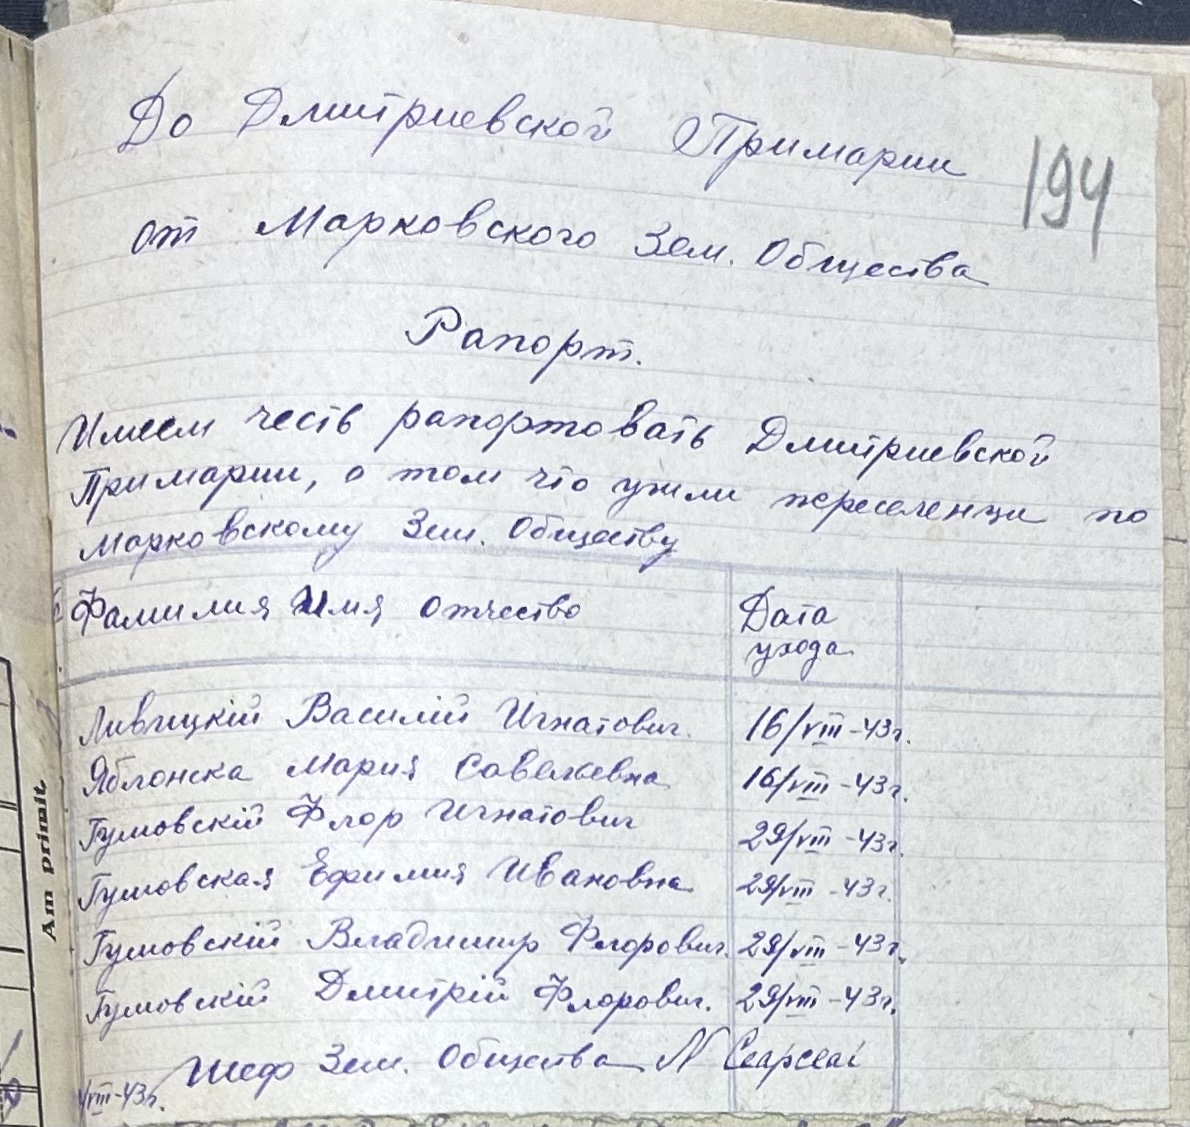 До Дмитриевской Примарии
194
от Марковского Зем. Общества
Рапорт.
Имеем честь рапортовать Дмитриевской
Примарии, о том что ушли переселенци по
Марковскому Зем. Обществу
Фамилия Имя отчество
Дата
ухода
Ливицкій Василій Игнатович. 16/VIII-43г.
Яблонска Мария Савельевна 16/VIII-43г.
Гумовскій Флор Игнатович 29/VIII-43г.
Гумовская Ефимия Ивановна 29/VIII-43г.
Гумовскій Владимир Флорович. 29/VIII-43г.
Гумовскій Дмитрій Флорович. 29/VIII-43г.
Шеф Зем. Общества
VIII-43г.
Am primit